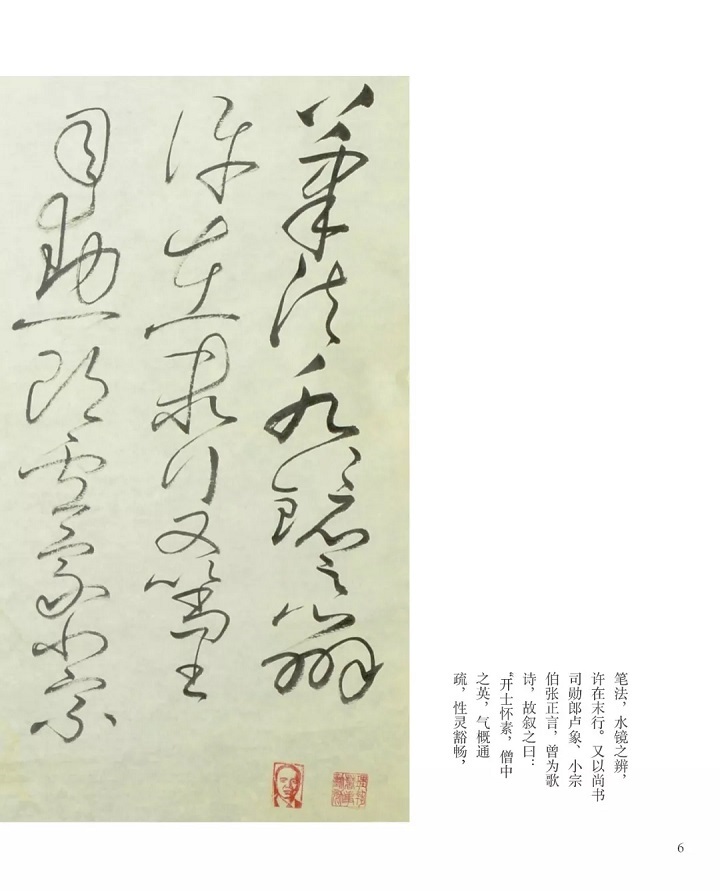 笔法，水镜之辨，
许在末行。又以尚书
司勋郎卢象、小宗
伯张正言，曾为歌
诗，故叙之曰：
“开士怀素，僧中
之英，气概通
疏，性灵豁畅，
筆法水鏡之辨
許在末行又以尚書
司勳郎盧象小宗
6